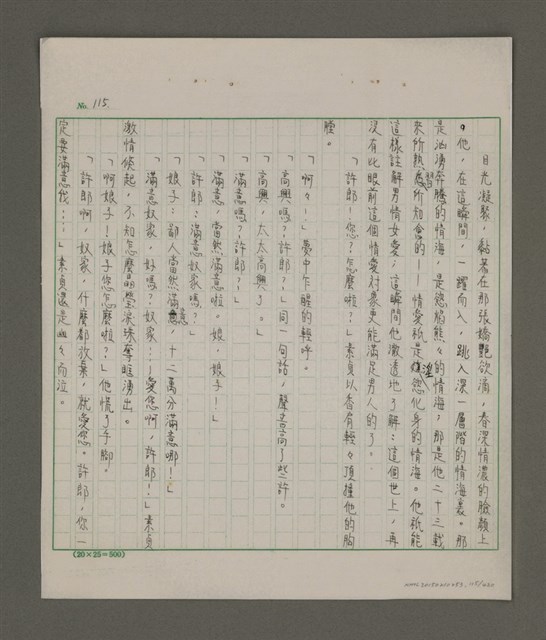 No. 115.
目光凝聚，黏著在那張嬌艷欲滴，春深情濃的臉頰上
。他，在這瞬間，一躍而入，跳入深一層階的情海裏。那
是洶湧奔騰的情海，是慾焰熊々的情海，那是他二十三載
來所熟習所知會的——情愛祇是淫慾化身的情海。他祇能
這樣註解男情女愛；這瞬間他澈透地了解：這個世上，再
沒有比眼前這個情愛對象更能滿足男人的了。
「許郎！您？怎麼啦？」素貞以香肩輕々頂撞他的胸
膛。
「啊々！」夢中乍醒的輕呼。
「高興嗎？許郎？」同一句話，聲音高了些許。
「高興，太太高興了。」
「滿意嗎？許郎？」
「滿意，當然滿意啦。娘，娘子！」
「許郎：滿意奴家嗎？」
「娘子：鄙人當然滿意，十二萬分滿意哪！」
「滿意奴家，好嗎？奴家…！愛您啊，許郎！」素貞
激情倏起，不知怎麼晶瑩淚珠奪眶湧出。
「啊娘子！娘子您怎麼啦？」他慌了手腳。
「許郎啊，奴家，什麼都放棄，就愛您。許郎，你一
定要滿意我…！」素貞還是幽々而泣。
(20×25=500)